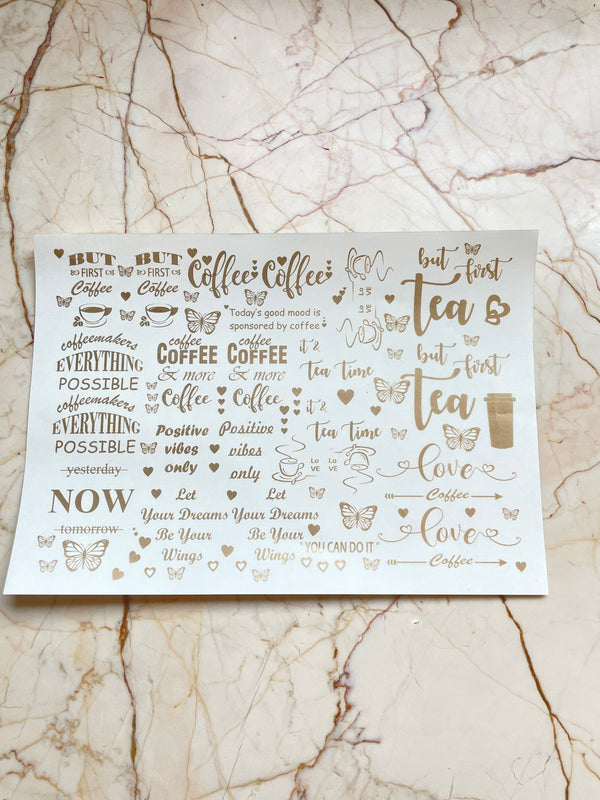 BUT
FIRST
Coffee
BUT
FIRST
Coffee
Coffee
Coffee
Today's good mood is
sponsored by coffee
Lo
VE
Lo
VE
but first
tea
but first
tea
coffeemakers
EVERYTHING
POSSIBLE
coffeemakers
EVERYTHING
POSSIBLE
coffee
COFFEE
& more
Coffee
coffee
COFFEE
& more
Coffee
it &
Tea Time
it &
Tea Time
Positive
vibes
only
Positive
vibes
only
Lo
VE
Lo
VE
yesterday
NOW
tomorrow
Let
Your Dreams
Be Your
Wings
Let
Your Dreams
Be Your
Wings
"YOU CAN DO IT"
love
Coffee
love
Coffee